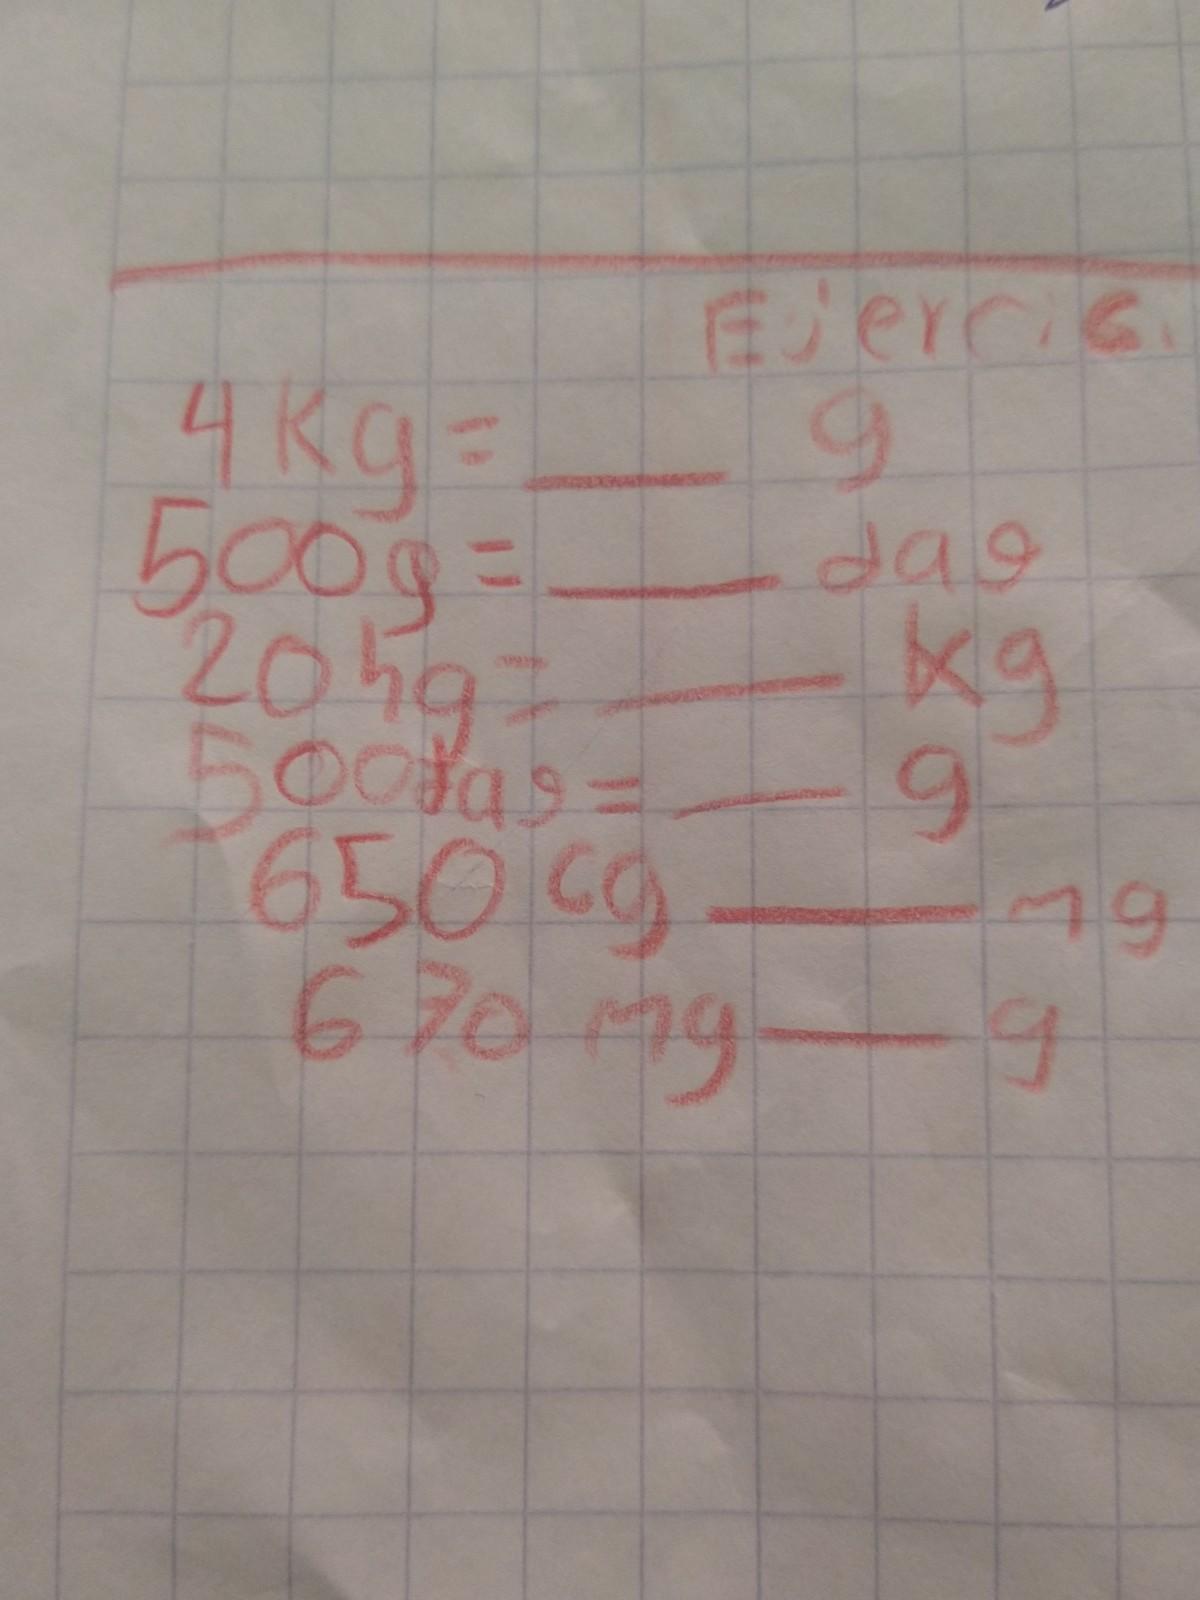 Ejercici
4 Kg = ___ g
500g = ___ dag
20 hg = ___ kg
500dag = ___ g
650 cg ___ mg
670 mg ___ g